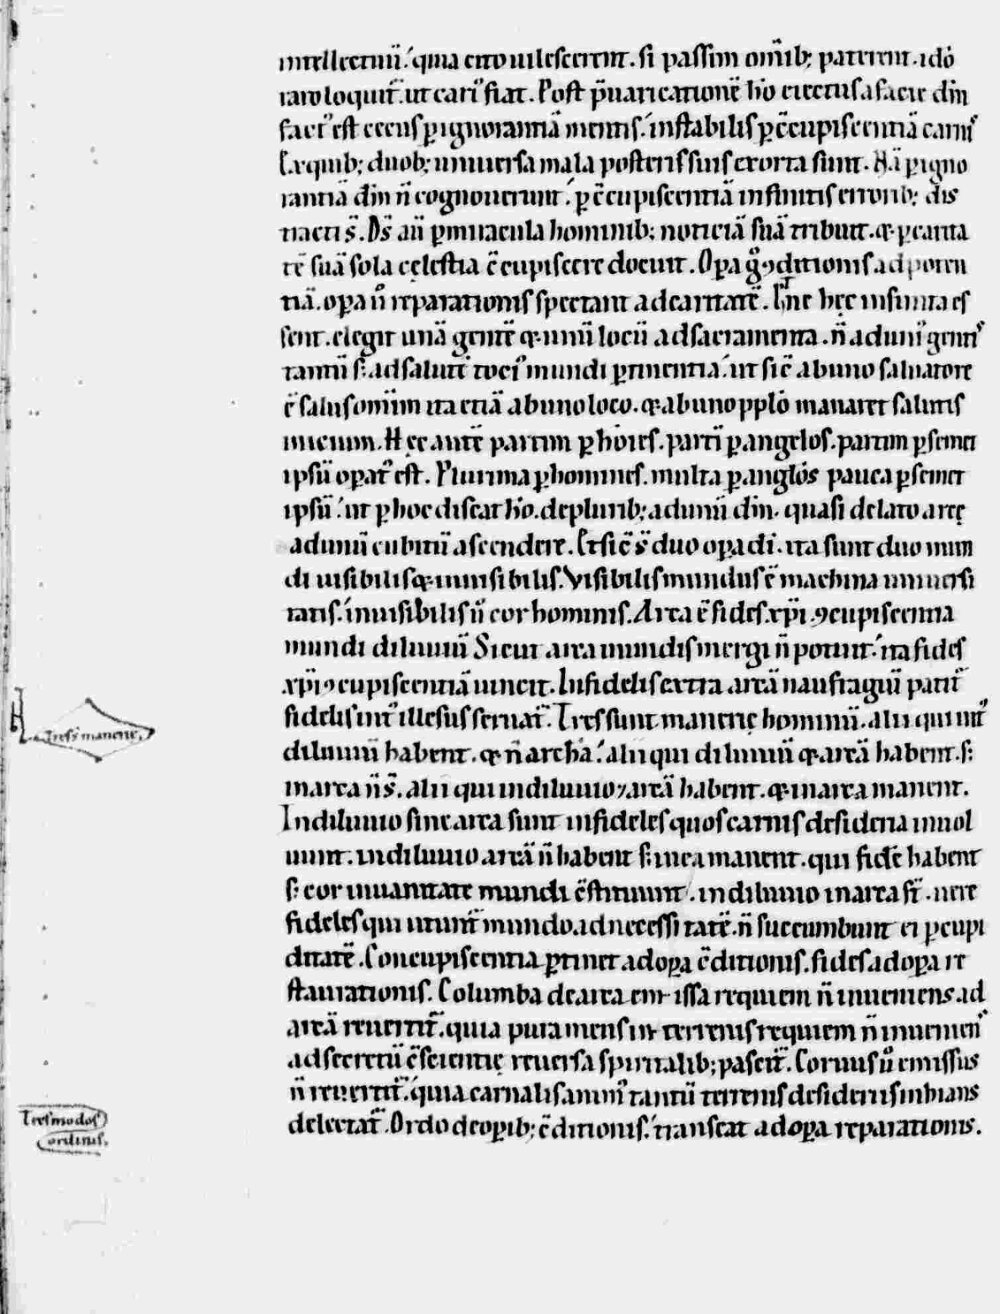 intellectuū. quia cito uilescerent. si passim omīb; paterent. idō
raro loquit̄. ut cari᷒ fiat. Post p̄uaricationē hō eiectus a facie dn̄i
fact᷒ est cecus ꝑ ignorantiā mentis. instabilis ꝑ c̄cupiscentiā carnis
Ex quib; duob; uniuersa mala posteris suis exorta sunt. Nā ꝑ igno
rantiā dm̄ n̄ cognouerunt. ꝑ c̄cupiscentiā infinitis errorib; dis
tracti s̄. Ds̄ aū ꝑ miracula hominib; noticiā suā tribuit. & ꝑ carita
tē suā sola cęlestia c̄cupiscere docuit. Oꝑa g̊ ꝯditionis ad poten
tiā. oꝑa ů reparationis spectant ad caritatē. Hec infinita es
sent. elegit unā gentē & unū locū ad sacramenta. n̄ ad uni᷒ gentis
tantū s; ad salutē toci᷒ mundi ꝑtinentia. ut sic̄ ab uno saluatore
ē salus om̄im ita etiā ab uno loco. & ab uno pplō manaret salutis
inicium. Hęc autē partim ꝑ hōies. partī ꝑ angelos. partim ꝑ semet
ipsū oꝑat᷒ est. Plurima ꝑ homines. multa ꝑ anglōs pauca ꝑ semet
ipsū. ut ꝑ hoc discat hō. de plurib; ad unū dm̄. quasi de lato arcę
ad unū cubitū ascendere. Et sic̄ s̄ duo oꝑa di. ita sunt duo mun
di uisibilis & inuisibilis. Visibilis mundus ē machina uniuersi
tatis. inuisibilis ů cor hominis. Arca ē fides xpi. ꝯcupiscentia
mundi diluuiū Sicut arca inundis mergi n̄ potuit. ita fides
xpi ꝯcupiscentiā uincit. Infidelis extra arcā naufragiū patit᷒
fidelis int᷒ illesus seruat᷒. Tres sunt manerię hominū. alii qui int᷒
diluuiū habent. & n̄ archā. alii qui diluuiū & arcā habent. s;
in arca n̄ s̄. alii qui in diluuio ⁊ arcā habent. & in arca manent.
In diluuio sine arca sunt infideles quos carnis desideria inuol
uunt. in diluuio arcā n̄ habent s; in ea manent. qui fidē habent
s; cor in uanitate mundi c̄stituunt. in diluuio in arca st̄. uere
fideles qui utunt᷒ mundo ad necessitatē. n̄ succumbunt ei ꝑ cupi
ditatē. Concupiscentia ꝑtinet ad oꝑa c̄ditionis. fides ad oꝑa re
staurationis. Columba de arca emissa requiem n̄ inueniens. ad
arcā reuertit᷒. quia pura mens in terrenis requiem n̄ inueniens
ad secretū c̄scientię reuersa spiritalib; pascit᷒. Coruus ů emissus
n̄ reuertit᷒. quia carnalis anim᷒ tantū terrenis desideriis inhians
delectat᷒. Ordo de oꝑib; c̄ditionis. transeat ad oꝑa reparationis.
Tres manerię.
Tres modos
ordinis.